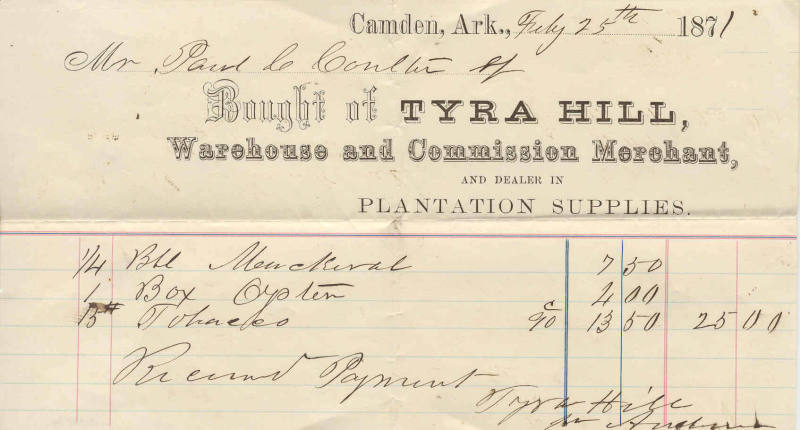 Camden, Ark., Feby 25th 1871
Mr Paul C Coulter
Bought of TYRA HILL,
Warehouse and Commission Merchant,
AND DEALER IN
PLANTATION SUPPLIES.
1/4 Bbl Mackeral 7 50
1 Box Oyster 4 00
15# Tobacco 90c 13 50 25 00
Received Payment
Tyra Hill